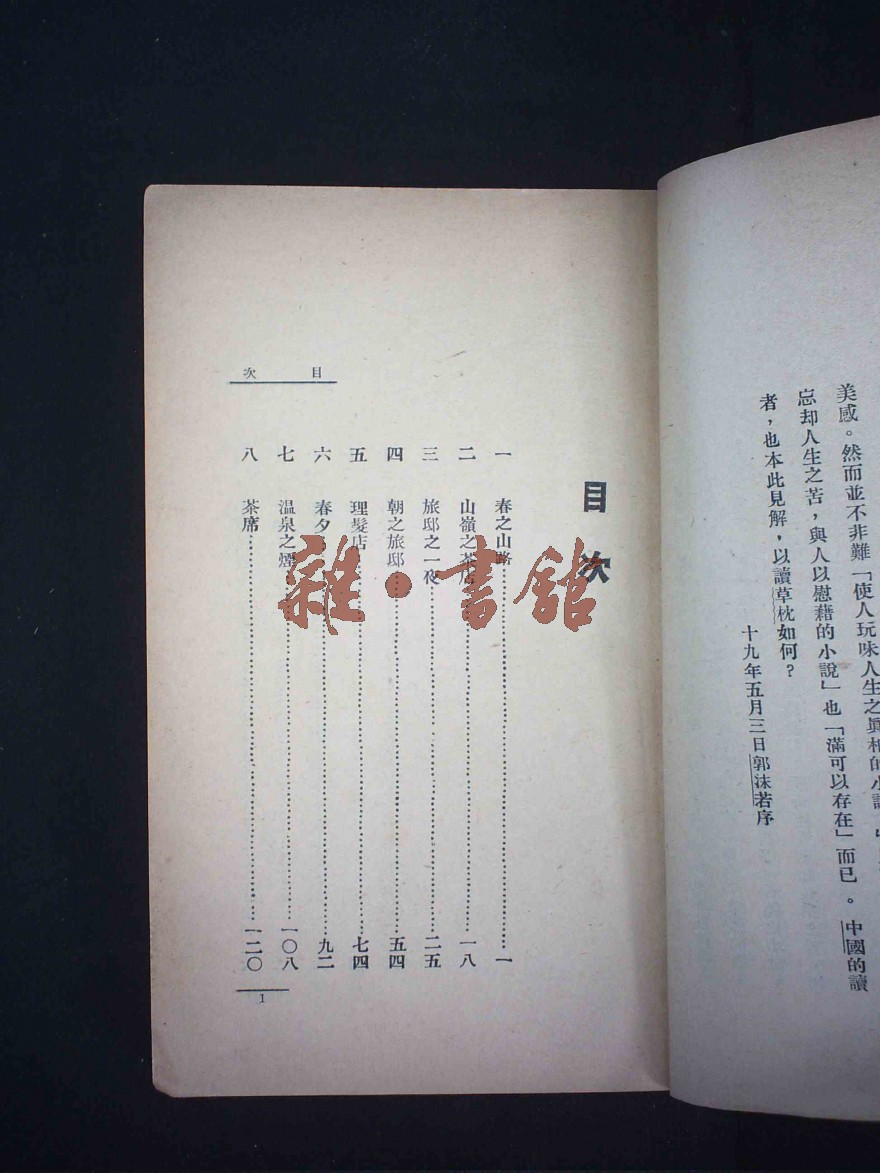 美感。然而並不非難「使人玩味人生之眞相的小說」
忘却人生之苦，與人以慰藉的小說」也「滿可以存在」而已。中國的讀
者，也本此見解，以讀草枕如何？
十九年五月三日郭沫若序
目次
一 春之山路……一
二 山嶺之茶店……一八
三 旅邸之一夜……二五
四 朝之旅邸……五四
五 理髮店……七四
六 春夕……九二
七 溫泉之煙……一〇八
八 茶席……一二〇
目次
1
雜·書館